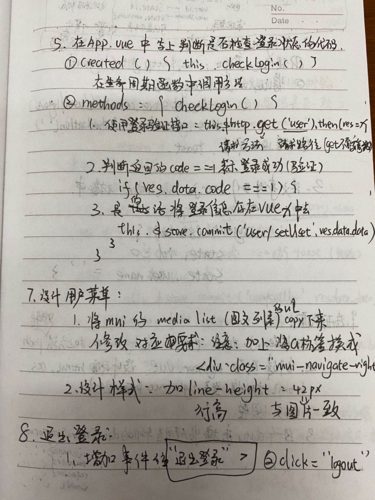 No.
Date
5. 在App.vue 中 写上 判断是否检查登录状态的代码.
① created ( ) { this. checkLogin ( ) }
在生命周期函数中调用方法
② methods : { checkLogin ( ) {
1. 使用登录验证接口 = this.$http.get ('user').then(res=>{
请求方法 请求路径
2. 判断返回的code ==1 表示 登录成功 (验证)
if ( res. data. code === 1 ) {
3. 是 的话 将 登录信息 存在vuex中去
this . $ store. commit ('user/setUser', res.data.data)
}
}
7. 设计 用户菜单 :
1. 将mui 的 media list (图文列表) copy下来
修改 对应 要求: 注意: 加上 将a标签 换成
<div class = "mui-navigate-right
2. 设计 样式: 加 line-height = 42px
行高 与图片一致
8. 退出登录:
1. 增加 事件 给 "退出登录" > @click = "logout"